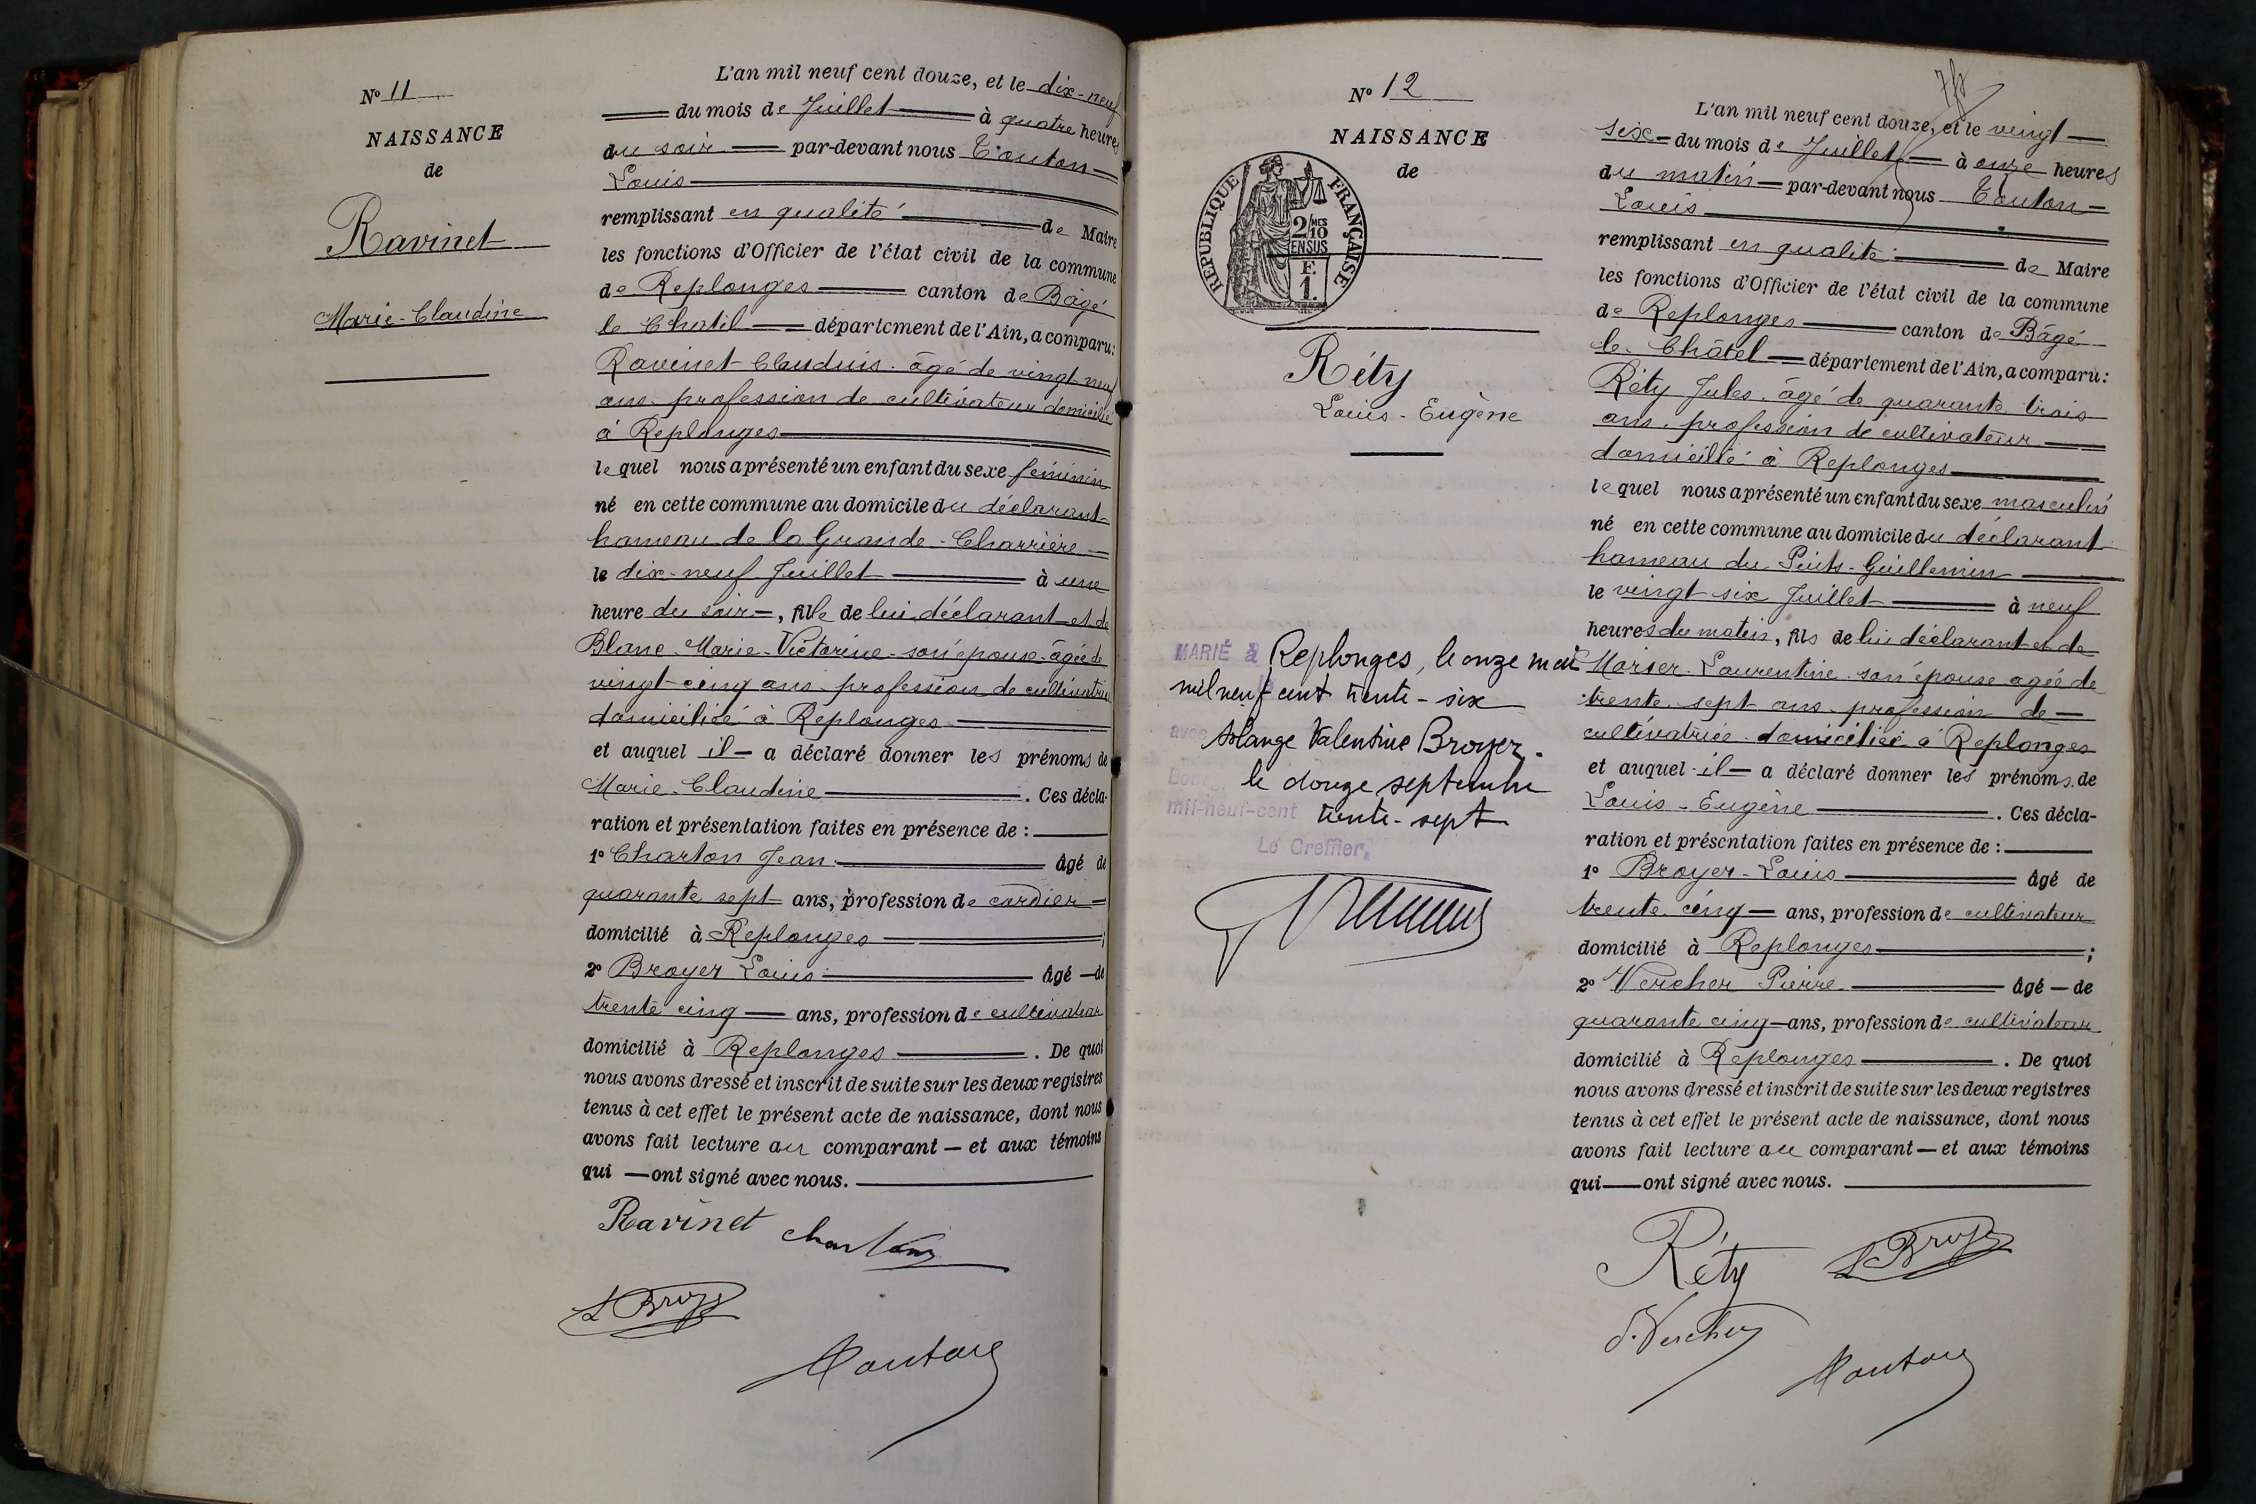 N° 11
NAISSANCE
de
Ravinet
Marie-Claudine
L'an mil neuf cent douze, et le dix-neuf
du mois de Juillet à quatre heures
du soir par-devant nous Couton
Louis
remplissant en qualité de Maire
les fonctions d'Officier de l'état civil de la commune
de Replonges canton de Bâgé
le Chatel département de l'Ain, a comparu:
Ravinet Claudius âgé de vingt neuf
ans profession de cultivateur domicilié
à Replonges
lequel nous a présenté un enfant du sexe féminin
né en cette commune au domicile du déclarant
hameau de la Grande-Charrière
le dix-neuf Juillet à une
heure du soir, fille de lui déclarant et de
Blanc Marie-Victorine son épouse âgée de
vingt-cinq ans profession de cultivatrice
domiciliée à Replonges
et auquel il a déclaré donner les prénoms de
Marie-Claudine. Ces décla-
ration et présentation faites en présence de :
1° Charton Jean âgé de
quarante sept ans, profession de cordier
domicilié à Replonges ;
2° Broyer Louis âgé de
trente cinq ans, profession de cultivateur
domicilié à Replonges. De quoi
nous avons dressé et inscrit de suite sur les deux registres
tenus à cet effet le présent acte de naissance, dont nous
avons fait lecture au comparant et aux témoins
qui ont signé avec nous.
Ravinet Charton
L Broyer
Couton
N° 12
NAISSANCE
de
RÉPUBLIQUE FRANÇAISE
2/10 MES
EN SUS
F.
1.
Réty
Louis-Eugène
MARIÉ à Replonges, le onze mai
mil neuf cent trente-six
avec Solange Valentine Broyer.
le douze septembre
mil-neuf-cent trente-sept
Le Greffier,
L'an mil neuf cent douze, et le vingt
six du mois de Juillet à onze heures
du matin par-devant nous Couton
Louis
remplissant en qualité de Maire
les fonctions d'Officier de l'état civil de la commune
de Replonges canton de Bâgé
le Châtel département de l'Ain, a comparu:
Réty Jules âgé de quarante trois
ans, profession de cultivateur
domicilié à Replonges
lequel nous a présenté un enfant du sexe masculin
né en cette commune au domicile du déclarant
hameau du Puits-Guillemin
le vingt six Juillet à neuf
heures du matin, fils de lui déclarant et de
Laurentine son épouse agée de
trente sept ans profession de
cultivatrice domiciliée à Replonges
et auquel il a déclaré donner les prénoms de
Louis-Eugène. Ces décla-
ration et présentation faites en présence de :
1° Broyer-Louis âgé de
trente cinq ans, profession de cultivateur
domicilié à Replonges ;
2° Vercher Pierre âgé de
quarante cinq ans, profession de cultivateur
domicilié à Replonges. De quoi
nous avons dressé et inscrit de suite sur les deux registres
tenus à cet effet le présent acte de naissance, dont nous
avons fait lecture au comparant et aux témoins
qui ont signé avec nous.
Réty L Broyer
P. Vercher
Couton